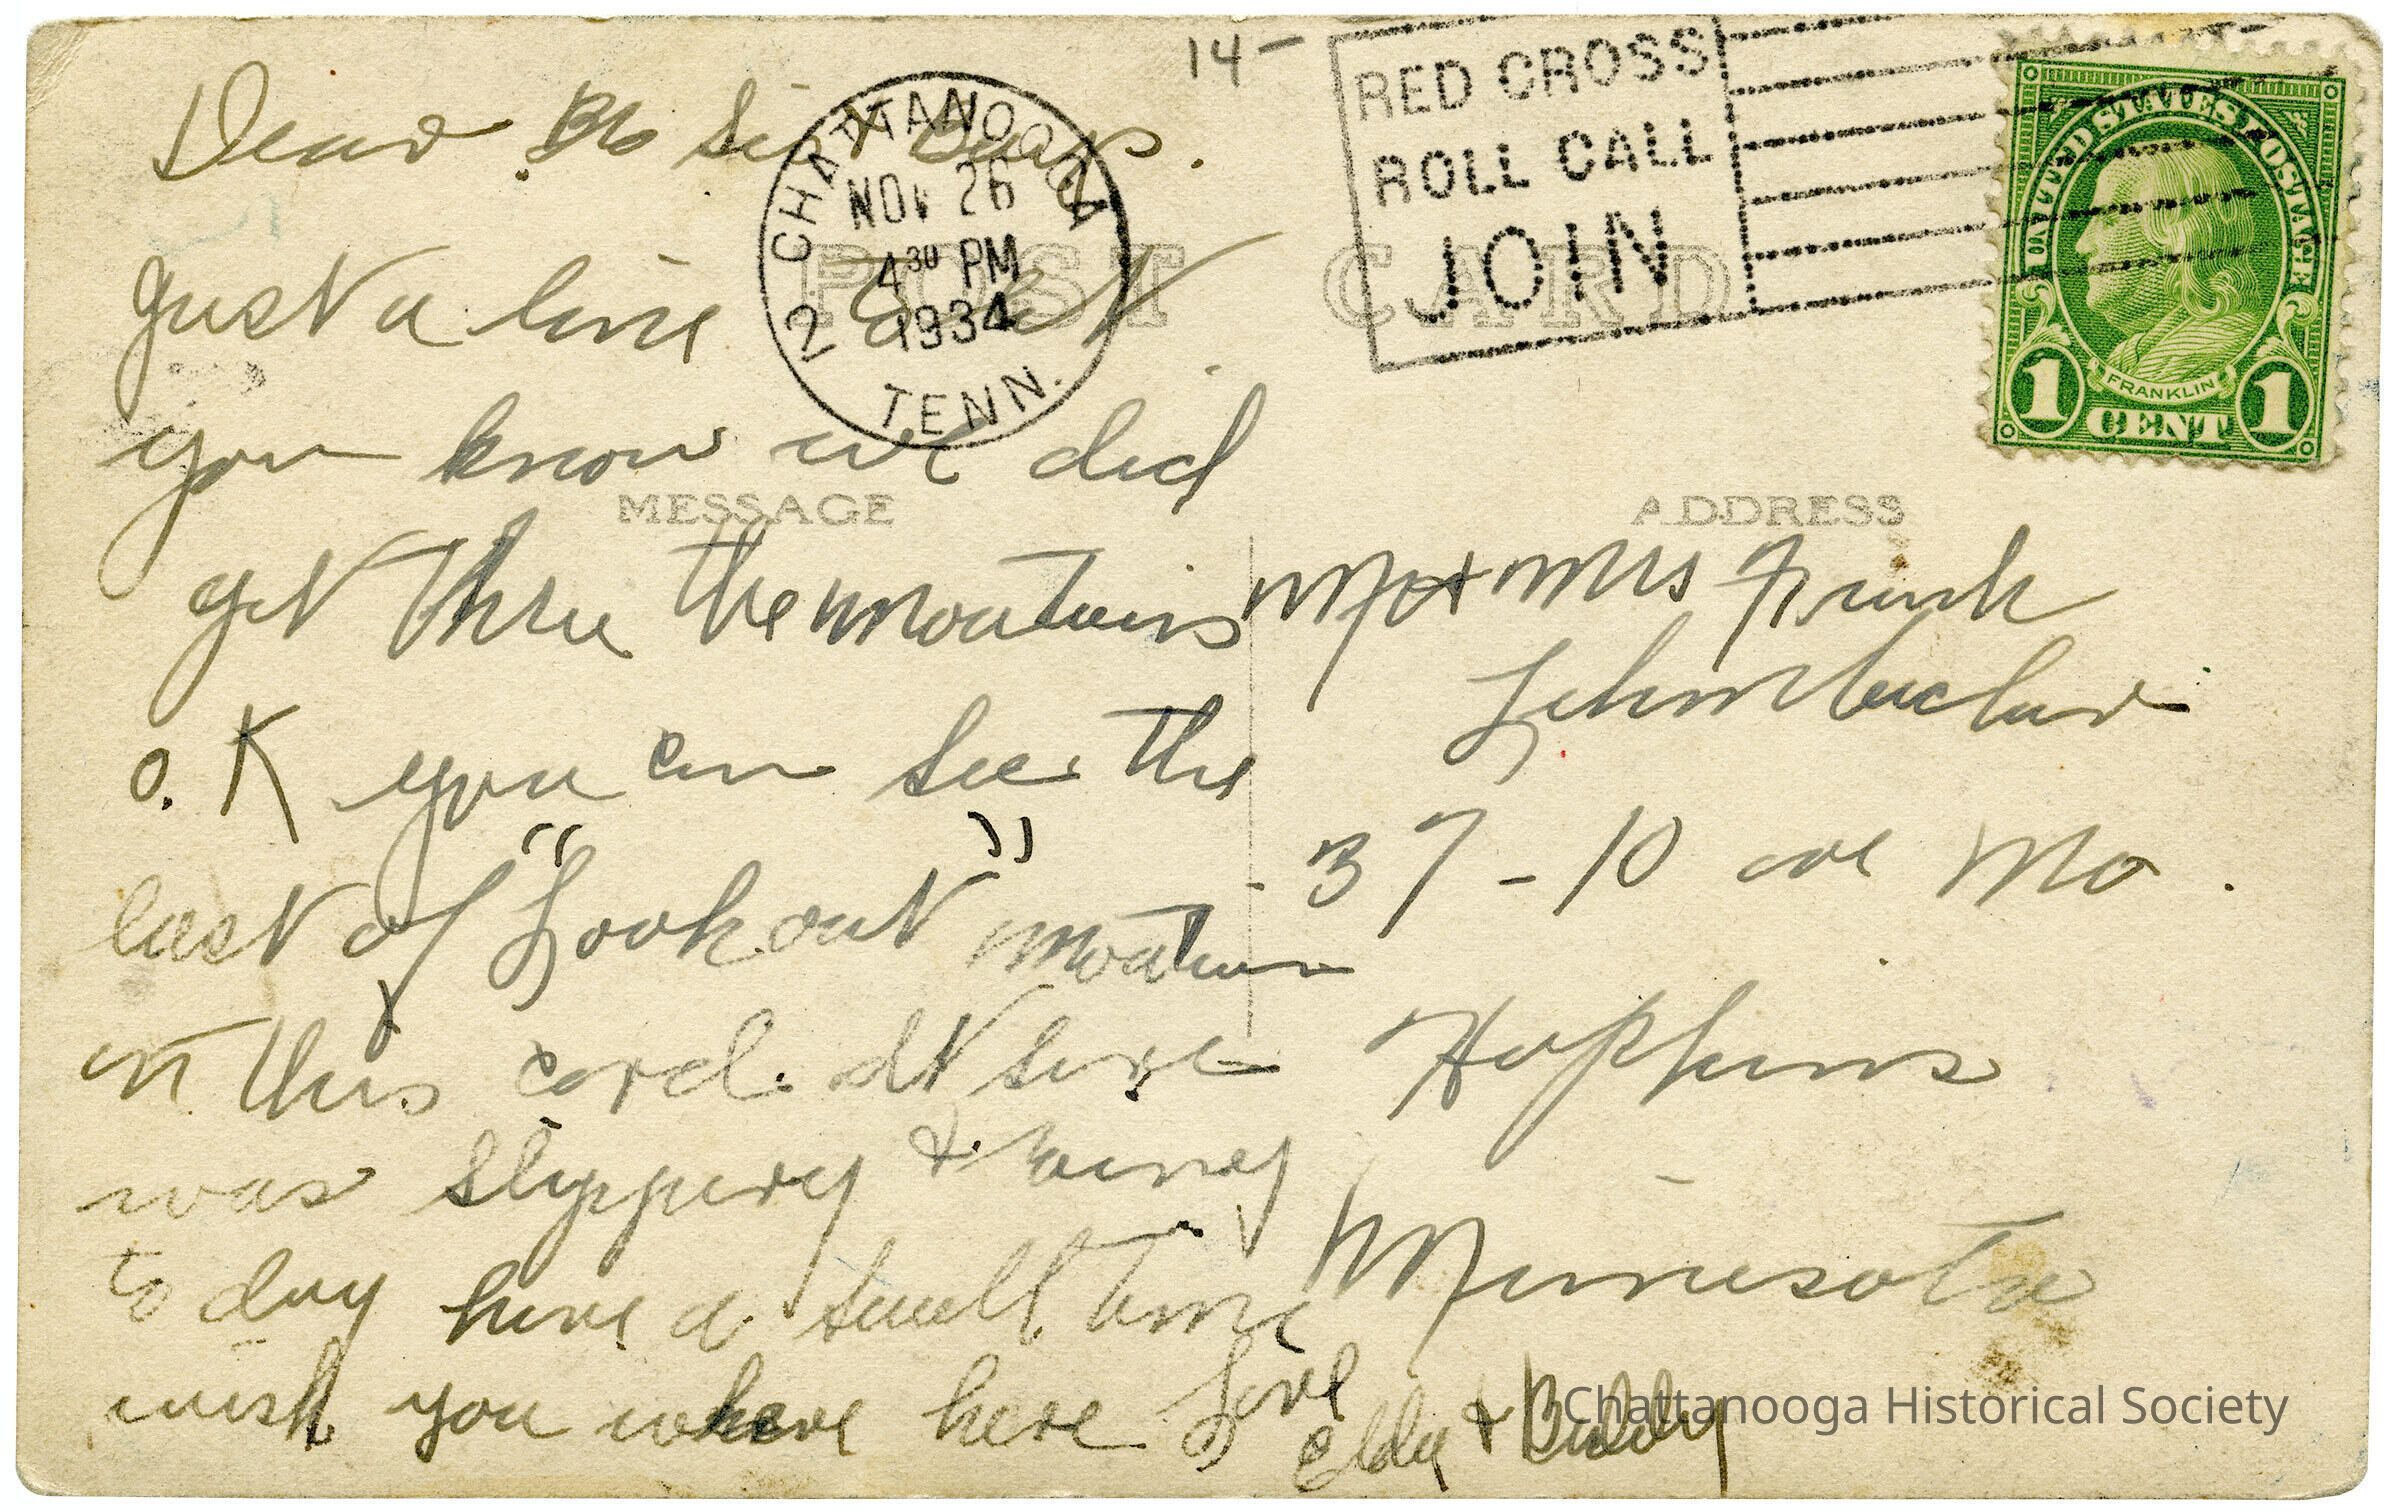 14-
RED CROSS
ROLL CALL
JOIN
CHATTANOOGA
NOV 26
4 30 PM
1934
2
TENN.
UNITED STATES POSTAGE
FRANKLIN
1 CENT 1
POST CARD
MESSAGE
ADDRESS
Dear Bro Sis & Boys.
Just a line to let
you know we did
get thru the moutains
o.K you can see the
last of "Lookout" moutain
on this card. It sure
was slippery & rainy
to day have a swell time
wish you where here Love
Elda & Buddy
Mr & Mrs Frank
37-10 ave No.
Hopkins
Minnesota
Chattanooga Historical Society